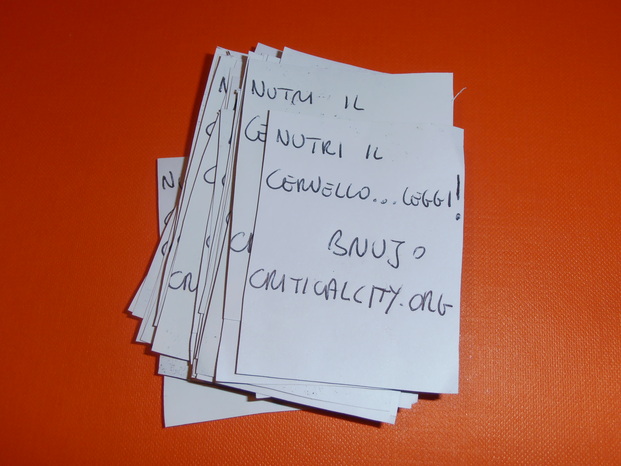 NUTRI IL
NUTRI IL
CERVELLO...LEGGI!
BRUJO
CRITICALCITY.ORG